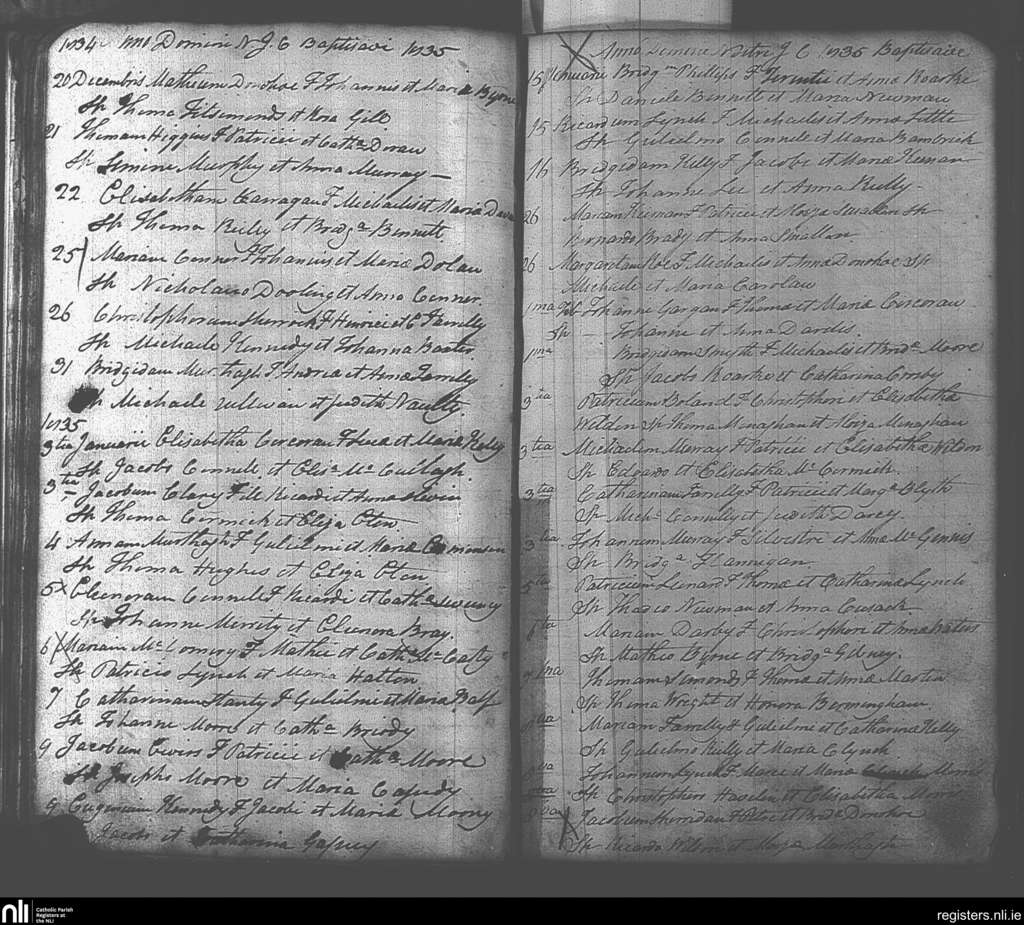 1834 Anno Domini N J C Baptisavi 1835
20 Decembris Matheum Donohoe F Johannis et Maria Byrne
Sp Thoma Fitsimonds et Rosa Gill
21 Thomam Higgins F Patricii et Cath^a Doran
Sp Simine Murphy et Anna Murray —
22 Elisabetham Carragan F Michaelis et Maria
Sp Thoma Reily et Bridg^a Bennett
25 Mariam Connor F Johannis et Mariæ Dolan
Sp Nicholaus Dooling et Anna Connor
26 Christopherum Sherrock F Henrici et C Farrelly
Sp Michaele Kennedy et Johanna Baxter
31 Bridgidam Murtagh F Andreæ et Annæ Farrelly
Sp Michaele et Judith Naulty
1835
3tia Januarii Elisabetha Corcoran F Lucæ et Mariæ Kelly
Sp Jacobo Connell et Elis^a Mc Cullagh
3tia Jacobum Clary Fil Ricardi et Anna
Sp Thoma Cormick et Eliza Oten
4 Annam Murthagh F Gulielmi et Maria
Sp Thoma Hughes et Eliza Oten
5 Elenoram Connell F Ricardi et Cath^a Sweeney
Sp Johanne Merrity et Elenora Bray
6 Mariam Mc F Mathei et Cath^a Mc Calty
Sp Patricio Lynch et Maria Hatton
7 Catharinam Stanty F Gulielmi et Maria Balf
Sp Johanne Moore et Cath^a Briody
9 Jacobum Owens F Patricii et Cath^a Moore
Sp Josepho Moore et Maria Casudy
9 Eugenium Kennedy F Jacobi et Mariæ Moony
Jacobo et Catharina Gafney
Anno Domini Nostri J C 1835 Baptisavi
15 Januarii Bridg^m Phillips F Terentii et Anna Roarke
Sp Daniele Bennett et Maria Newman
15 Ricardum Lynch F Michaelis et Anna Tuttle
Sp Gulielmo Connell et Maria Bambrick
16 Bridgidam Kelly F Jacobi et Mariæ Keenan
Sp Johanne Lee et Anna Reilly
26 Mariam Keenan F Patricii et Aloiza Sp
Bernardo Brady et Anna Smallan
26 Margaretam F Michaelis et Anna Donohoe Sp
Michaele et Maria Carolan
1ma Feb Johanne Gargan F Thoma et Maria Corcoran
Sp — Johanne et Anna Dardis
1ma Bridgidam Smyth F Michaelis et Brid^a Moore
Sp Jacobo Roarke et Catharina Crosby
3tia Patricium Boland F Christophori et Elisabetha
Wildon Sp Thoma Monaghan et Aloiza Monaghan
3tia Michaelem Murray F Patricii et Elisabetha Wildon
Sp Edwardo et Elisabetha Mc Cormick
3tia Catharinam Farrelly F Patricii et Marg^a Blyth
Sp Mich^l Connolly et Judith Darcy
3tia Johannem Murray F Silvestri et Anna Mc Gennis
Sp Bridg^a Flannigan
5ta Patricium Lenard F Thoma et Catharina Lynch
Sp Thadeo Newman et Anna Cusack
Mariam Darby F Christophori et Anna
Sp Matheo Byrne et Bridg^a Gilney
Thomam Simonds F Thoma et Anna Martin
Sp Thoma Wright et Honora Bermingham
Mariam Farrelly F Gulielmi et Catharina Kelly
Sp Gulielmo Reilly et Maria Clynch
Johannem Lynch F Marci et Maria Morris
Sp Christophero et Elisabetha Morris
Jacobum Sheridan F Petri et Brid^a Donohoe
Sp Ricardo Wildon et Aloiza Murthagh
nli
Catholic Parish
Registers at
the NLI
registers.nli.ie